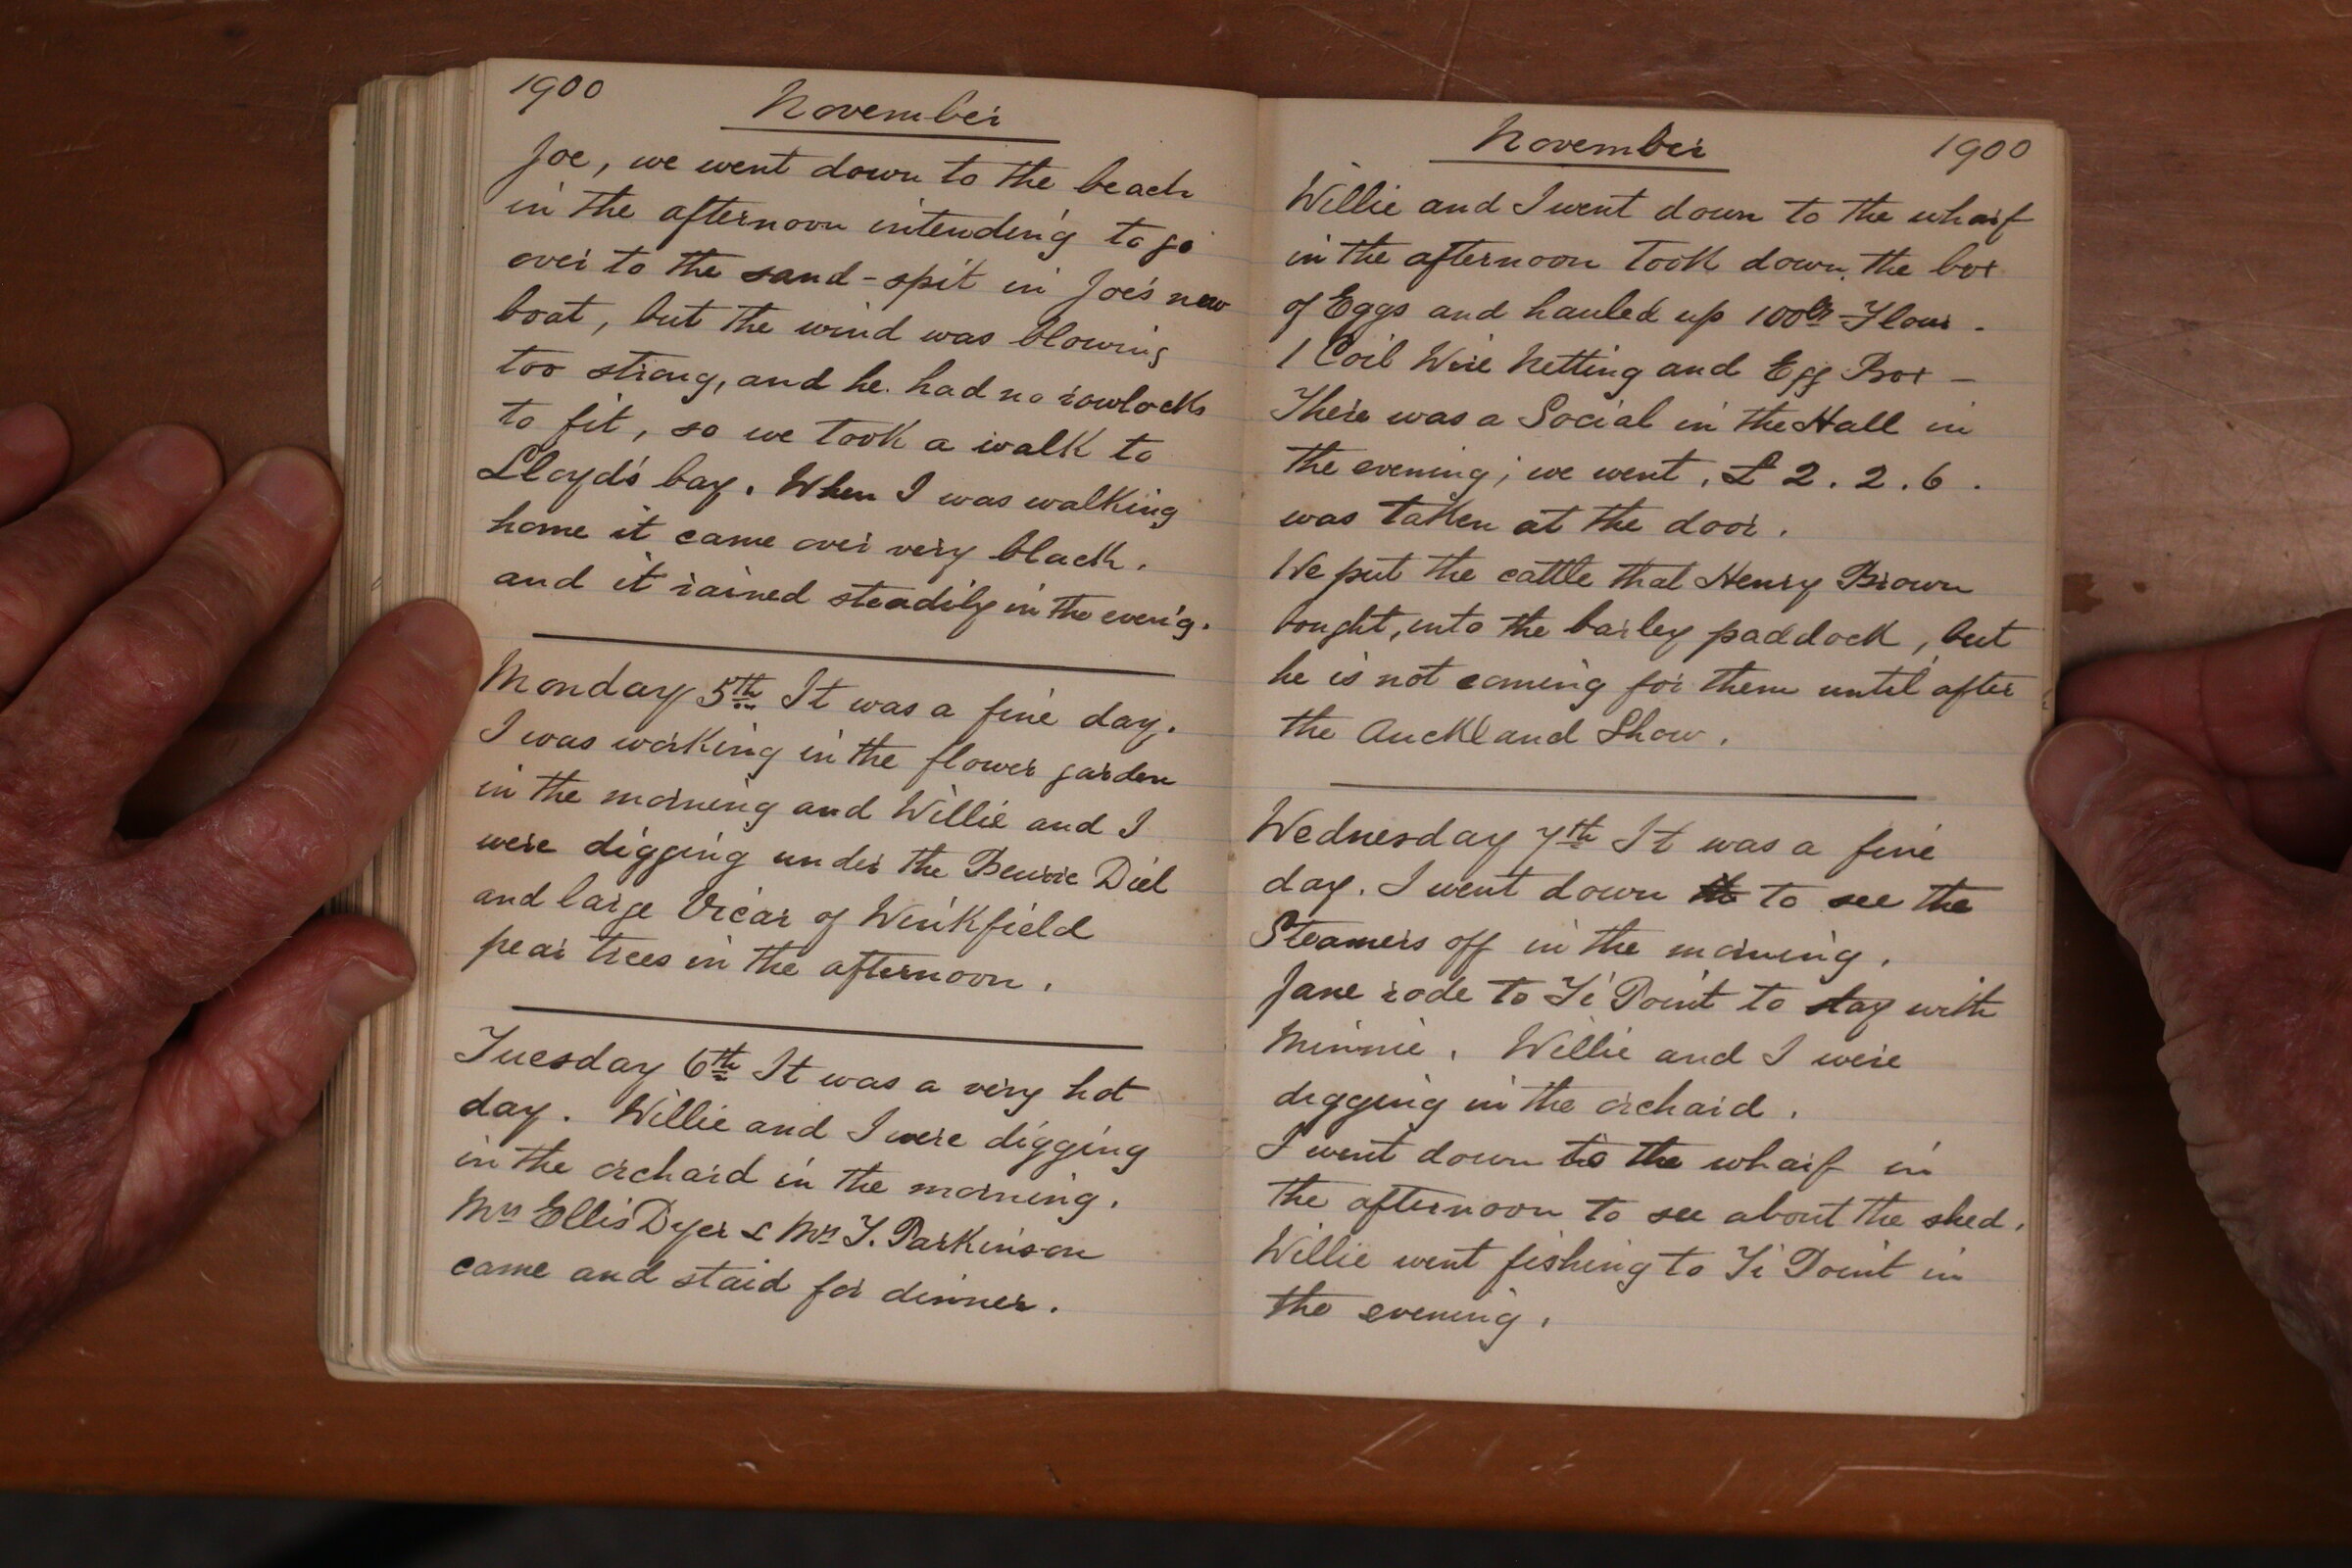 1900
November
Joe, we went down to the beach
in the afternoon intending to go
over to the sand-spit in Joe's new
boat, but the wind was blowing
too strong, and he had no rowlocks
to fit, so we took a walk to
Lloyd's bay. When I was walking
home it came over very black.
and it rained steadily in the even'g.
Monday 5th It was a fine day.
I was working in the flower garden
in the morning and Willie and I
were digging under the Beurre Diel
and large Vicar of Winkfield
pear trees in the afternoon.
Tuesday 6th It was a very hot
day. Willie and I were digging
in the orchard in the morning.
Mrs Ellis Dyer & Mrs T. Parkinson
came and staid for dinner.
November 1900
Willie and I went down to the wharf
in the afternoon took down the box
of Eggs and hauled up 100lbs Flour.
1 Coil Wire Netting and Egg Box -
There was a Social in the Hall in
the evening; we went, £2.2.6.
was taken at the door.
We put the cattle that Henry Brown
bought, into the barley paddock, but
he is not coming for them until after
the Auckland Show.
Wednesday 7th It was a fine
day. I went down to see the
Steamers off in the morning.
Jane rode to Ti Point to stay with
Minnie. Willie and I were
digging in the orchard.
I went down to the wharf in
the afternoon to see about the shed.
Willie went fishing to Ti Point in
the evening.